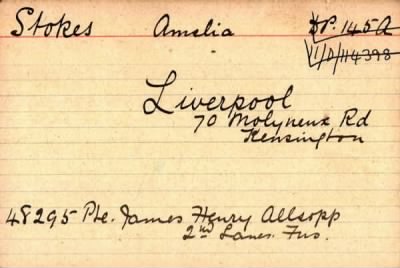 Stokes Amelia DP. 145A
1/D/114398
Liverpool
70 Molyneux Rd
Kensington
48295 Pte. James Henry Allsopp
2nd Lancs. Fus.